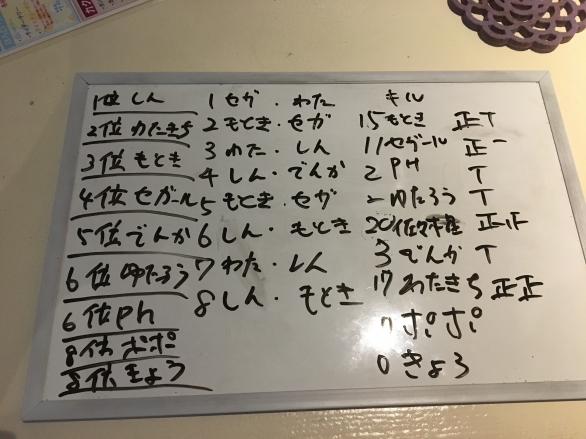 1位しん
2位わたきち
3位もとき
4位セガール
5位でんか
6位ゆたろう
6位ph
8位ポポ
8位きょう
1 セガ・わた
2 もとき・セガ
3 わた・しん
4 しん・でんか
5 もとき・セガ
6 しん・もとき
7 わた・しん
8 しん・もとき
キル
15 もとき 正T
11 セガール 正一
2 PH T
2 ゆたろう T
20 佐々木 正正
3 でんか T
17 わたきち 正正
0 ポポ
0 きょう